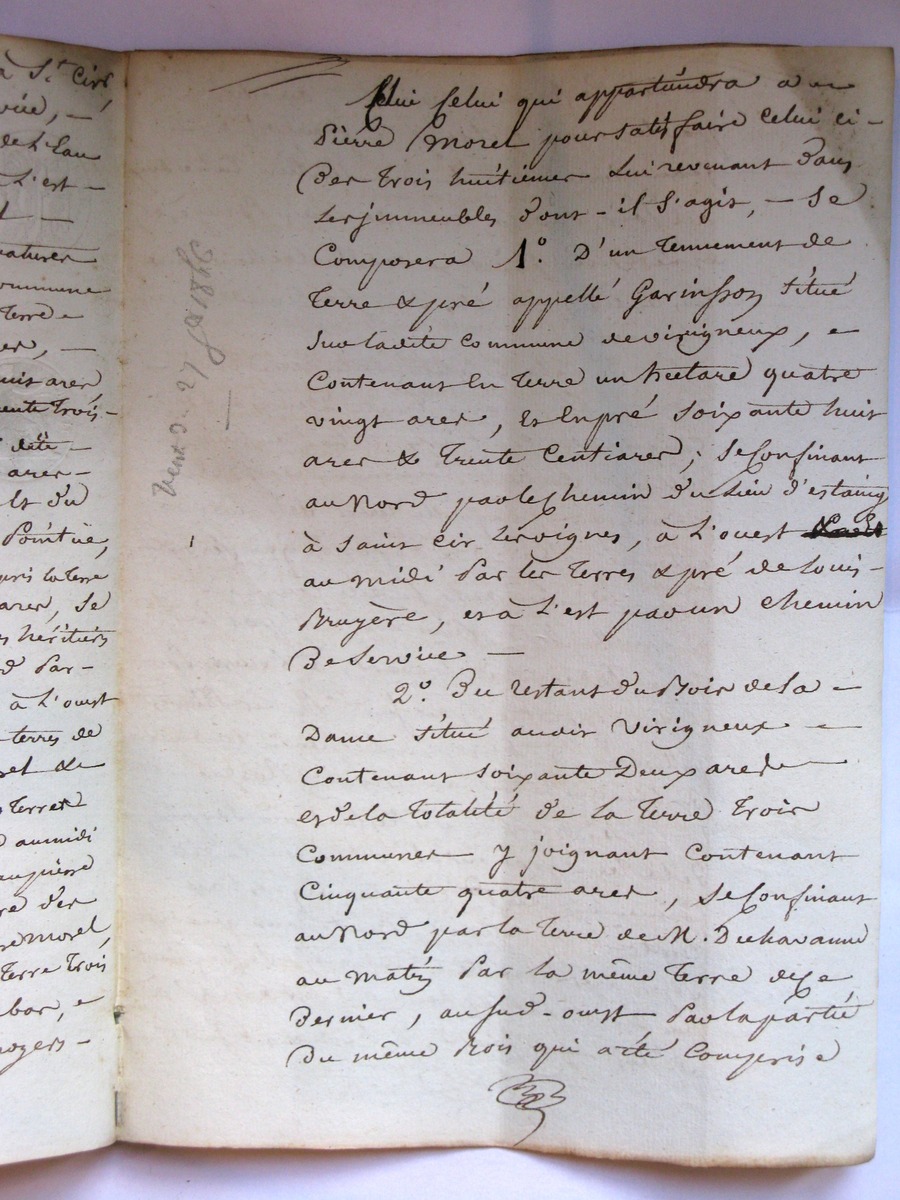 à St Cir
de L'Eau
L'est —
commune
Terre
arer
ente trois-
arer —
Pointüe,
la terre
arer, Se
héritiers
Par —
à L'ouest
terres de
Terres
au midi
Morel,
Terre Trois
Celui qui appartiendra a
Pierre Morel pour satisfaire Celui ci —
Des Trois huitiemes Lui revenant Dans
Les jmmeubles dont - il S'agit, — Se
Composera 1°. D'un Tennement de
Terre & pré appellé Garinsson Situé
Sur ladite Commune de virigneux,
Contenant En Terre un hectare quatre
vingt ares, Et En pré Soixante huit
ares & Trente Centiares; Se Confinant
au Nord par le Chemin du Lieu d'estaing
à Saint Cir Les vignes, à L'ouest
au midi Par les Terres & pré de Louis —
Bruyère, et à L'est par un Chemin
De Service —
2°. Du restant du Bois de la —
Dame Situé audit Virigneux —
Contenant Soixante Deux ares
et de la Totalité de la Terre Trois
Communes y joignant Contenant
Cinquante quatre ares, Se Confinant
au Nord par la Terre de M. Dechavanne
au matin Par la même Terre de Ce
Dernier, au Sud - ouest Par la partie
Du même Bois qui a été Comprise
27